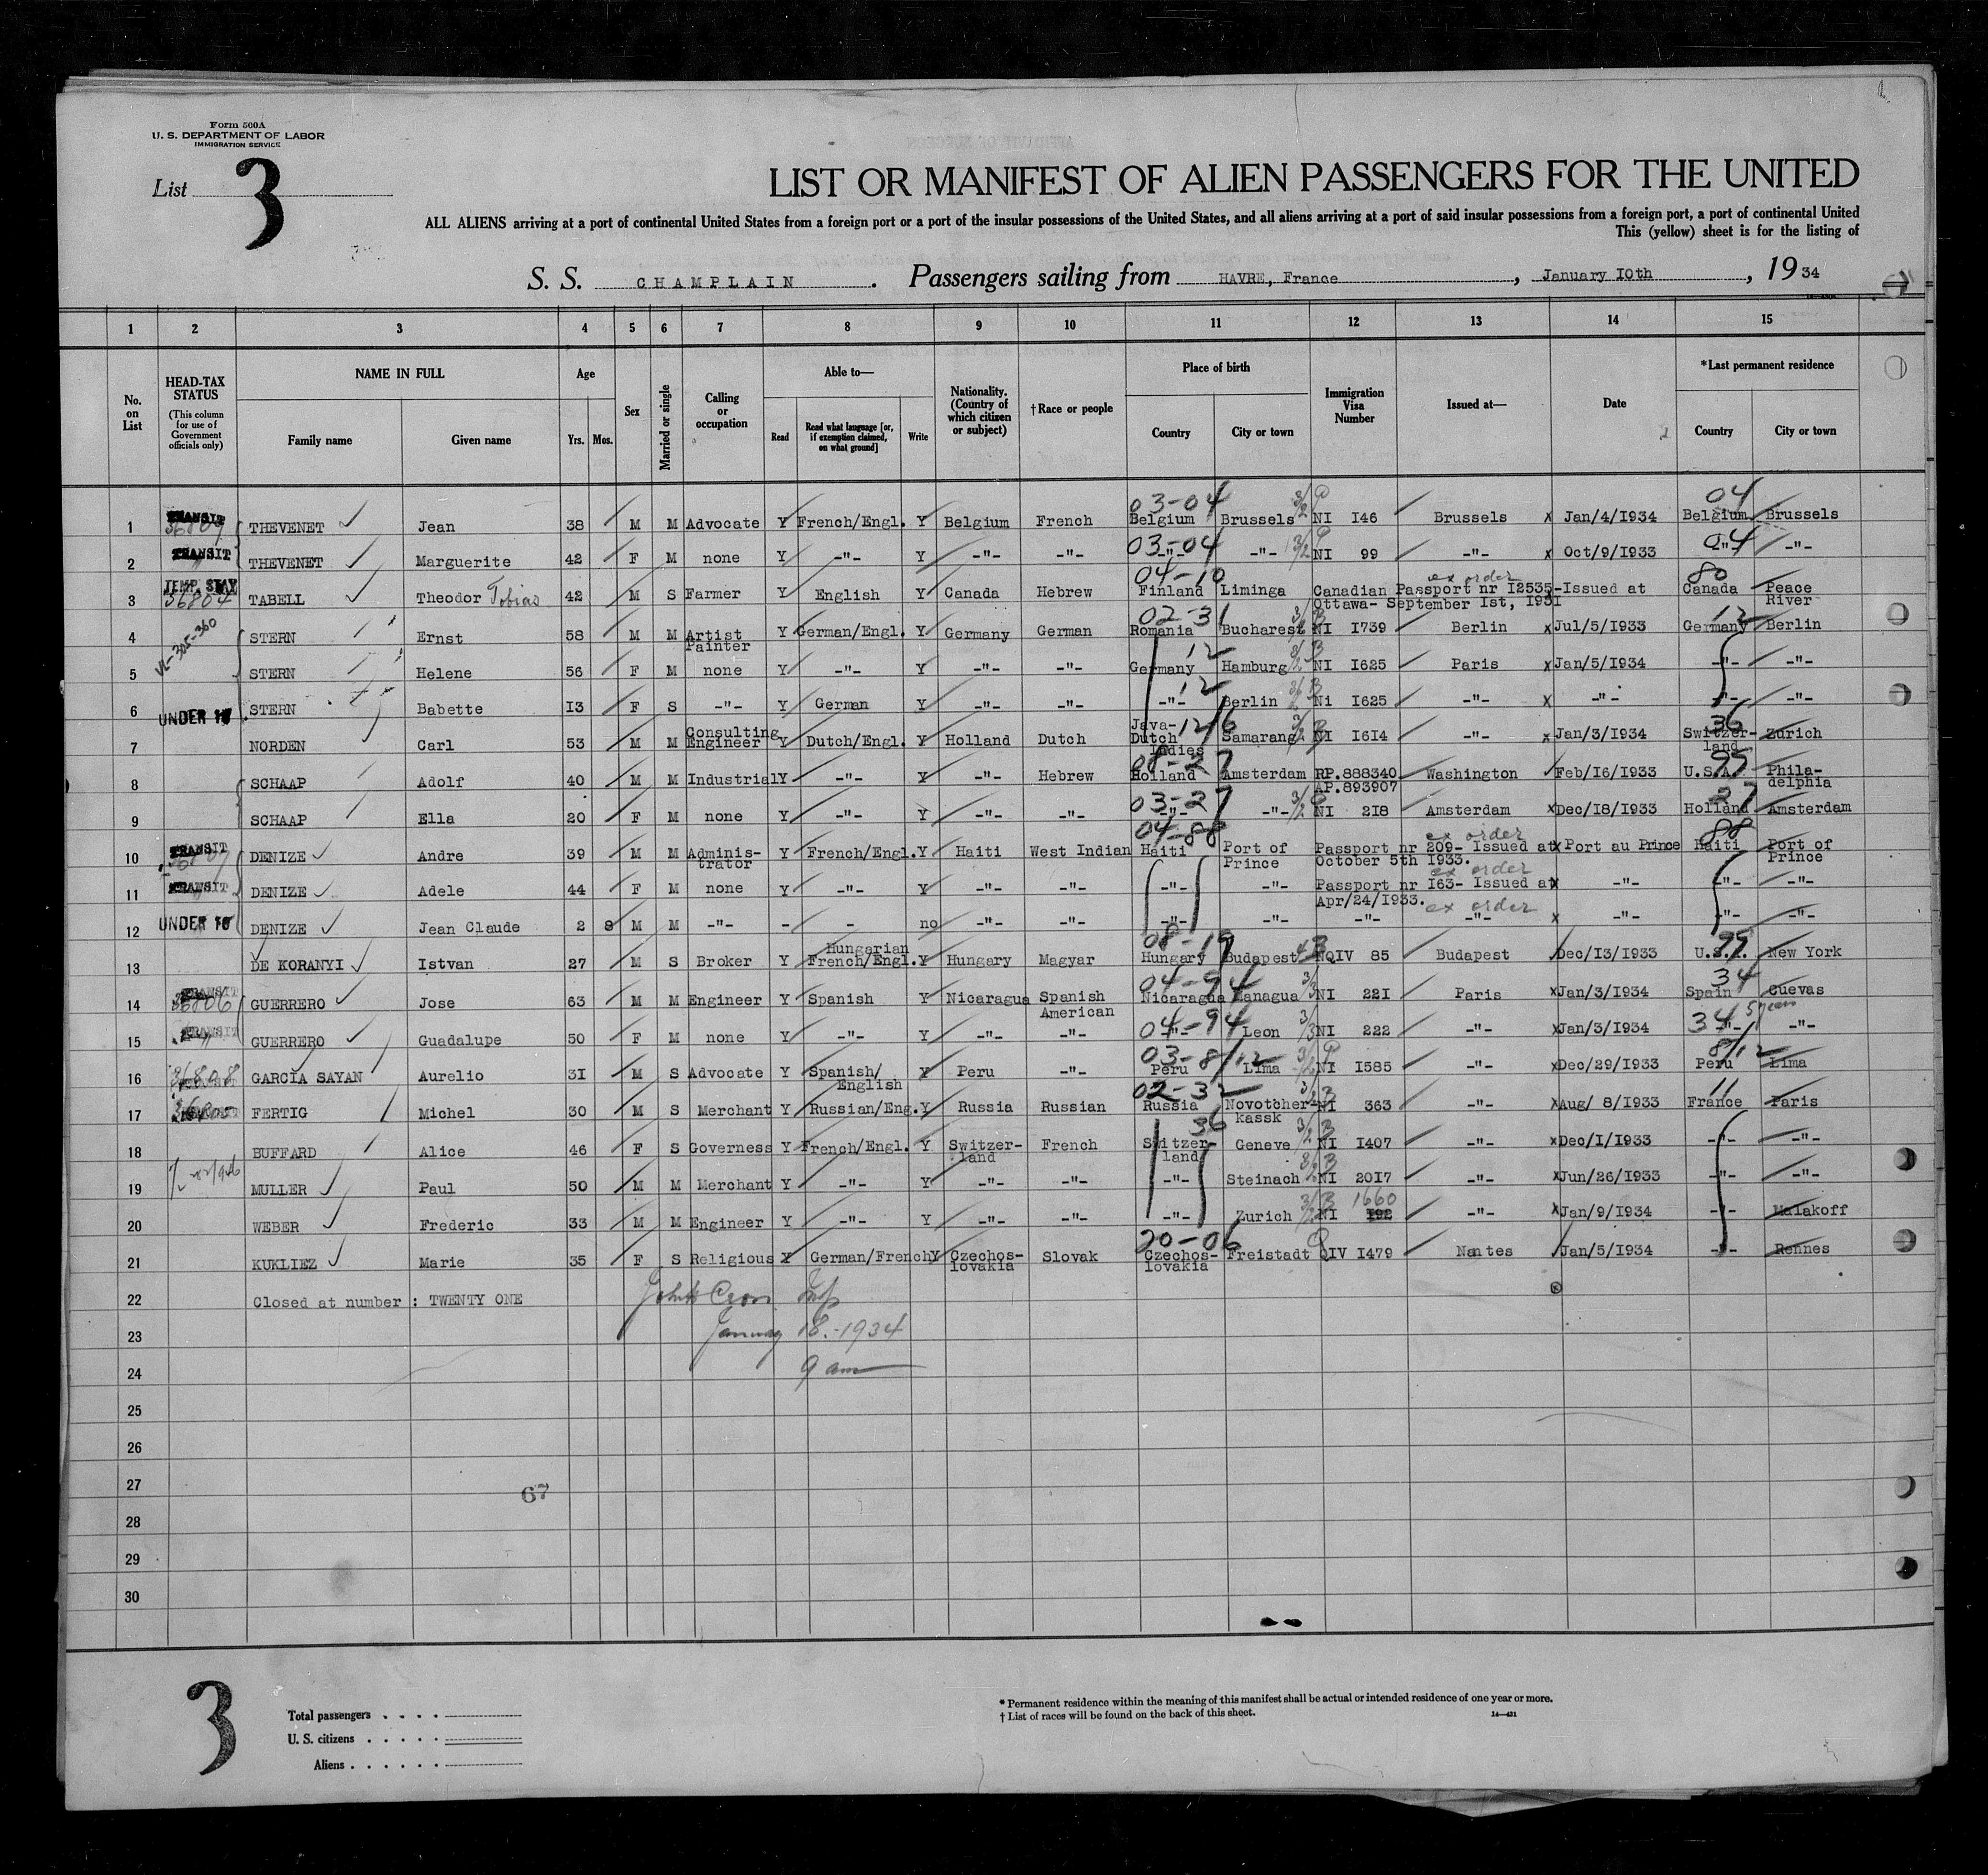 Form 500A
U. S. DEPARTMENT OF LABOR
IMMIGRATION SERVICE
List 3
LIST OR MANIFEST OF ALIEN PASSENGERS FOR THE UNITED
ALL ALIENS arriving at a port of continental United States from a foreign port or a port of the insular possessions of the United States, and all aliens arriving at a port of said insular possessions from a foreign port, a port of continental United
This (yellow) sheet is for the listing of
S. S. CHAMPLAIN . Passengers sailing from HAVRE, France , January I0th , 1934
1 2 3 4 5 6 7 8 9 10 11 12 13 14 15
No. on List
HEAD-TAX STATUS (This column for use of Government officials only)
NAME IN FULL Family name Given name
Age Yrs. Mos.
Sex
Married or single
Calling or occupation
Able to— Read Read what language [or, if exemption claimed, on what ground] Write
Nationality. (Country of which citizen or subject)
† Race or people
Place of birth Country City or town
Immigration Visa Number
Issued at—
Date
* Last permanent residence Country City or town
03-04 04
1 TRANSIT 36809 THEVENET Jean 38 M M Advocate Y French/Engl. Y Belgium French Belgium Brussels NI I46 Brussels x Jan/4/I934 Belgium Brussels
2 TRANSIT THEVENET Marguerite 42 F M none Y -"- Y -"- -"- 03-04 -"- -"- NI 99 -"- x Oct/9/I933 04 -"- -"-
04-10 ex order 80
3 TEMP. STAY 36804 TABELL Theodor Tobias 42 M S Farmer Y English Y Canada Hebrew Finland Liminga Canadian Passport nr I2535-Issued at Canada Peace
Ottawa- September Ist, I931 River
02-31 12
4 STERN Ernst 58 M M Artist Y German/Engl. Y Germany German Romania Bucharest NI I739 Berlin x Jul/5/I933 Germany Berlin
Painter
12
5 STERN Helene 56 F M none Y -"- Y -"- -"- Germany Hamburg NI I625 Paris x Jan/5/I934 -"- -"-
12
6 UNDER 16 STERN Babette I3 F S -"- Y German Y -"- -"- -"- Berlin Ni I625 -"- x -"- -"- -"-
Consulting Java- 36
7 NORDEN Carl 53 M M Engineer Y Dutch/Engl. Y Holland Dutch Dutch Samarang NI I6I4 -"- x Jan/3/I934 Switzer- Zurich
Indies land
08-27 95
8 SCHAAP Adolf 40 M M Industrial Y -"- Y -"- Hebrew Holland Amsterdam RP.888340 Washington Feb/I6/I933 U.S.A. Phila-
AP.893907 delphia
03-27 27
9 SCHAAP Ella 20 F M none Y -"- Y -"- -"- -"- -"- NI 2I8 Amsterdam x Dec/I8/I933 Holland Amsterdam
04-88 ex order 88
10 TRANSIT DENIZE Andre 39 M M Adminis- Y French/Engl. Y Haiti West Indian Haiti Port of Passport nr 209- Issued at x Port au Prince Haiti Port of
trator Prince October 5th I933. Prince
ex order
11 TRANSIT DENIZE Adele 44 F M none Y -"- Y -"- -"- -"- -"- Passport nr I63- Issued at x -"- -"- -"-
Apr/24/I933. ex order
12 UNDER 16 DENIZE Jean Claude 2 8 M M -"- - - no -"- -"- -"- -"- -"- -"- x -"- -"- -"-
Hungarian 08-19 95
13 DE KORANYI Istvan 27 M S Broker Y French/Engl. Y Hungary Magyar Hungary Budapest NQIV 85 Budapest Dec/I3/I933 U.S.A. New York
04-94 34
14 TRANSIT 36806 GUERRERO Jose 63 M M Engineer Y Spanish Y Nicaragua Spanish Nicaragua Managua NI 22I Paris x Jan/3/I934 Spain Cuevas
American
15 TRANSIT GUERRERO Guadalupe 50 F M none Y -"- Y -"- -"- 04-94 -"- Leon NI 222 -"- x Jan/3/I934 34 -"- -"-
16 36808 GARCIA SAYAN Aurelio 3I M S Advocate Y Spanish/ Y Peru -"- Peru Lima NI I585 -"- x Dec/29/I933 Peru Lima
English
02-32 11
17 36805 FERTIG Michel 30 M S Merchant Y Russian/Eng. Y Russia Russian Russia Novotcher- NI 363 -"- x Aug/ 8/I933 France Paris
kassk
36
18 BUFFARD Alice 46 F S Governess Y French/Engl. Y Switzer- French Switzer- Geneve NI I407 -"- x Dec/I/I933 -"- -"-
land land
19 MULLER Paul 50 M M Merchant Y -"- Y -"- -"- -"- Steinach NI 20I7 -"- x Jun/26/I933 -"- -"-
1660
20 WEBER Frederic 33 M M Engineer Y -"- Y -"- -"- -"- Zurich NI I92 -"- x Jan/9/I934 -"- Malakoff
20-06
21 KUKLIEZ Marie 35 F S Religious Y German/French Y Czechos- Slovak Czechos- Freistadt QIV I479 Nantes Jan/5/I934 -"- Rennes
lovakia lovakia
22 Closed at number : TWENTY ONE
23 January 18.-1934
24 9 am
25
26
27
67
28
29
30
3
Total passengers
U. S. citizens
Aliens
* Permanent residence within the meaning of this manifest shall be actual or intended residence of one year or more.
† List of races will be found on the back of this sheet.
14—421